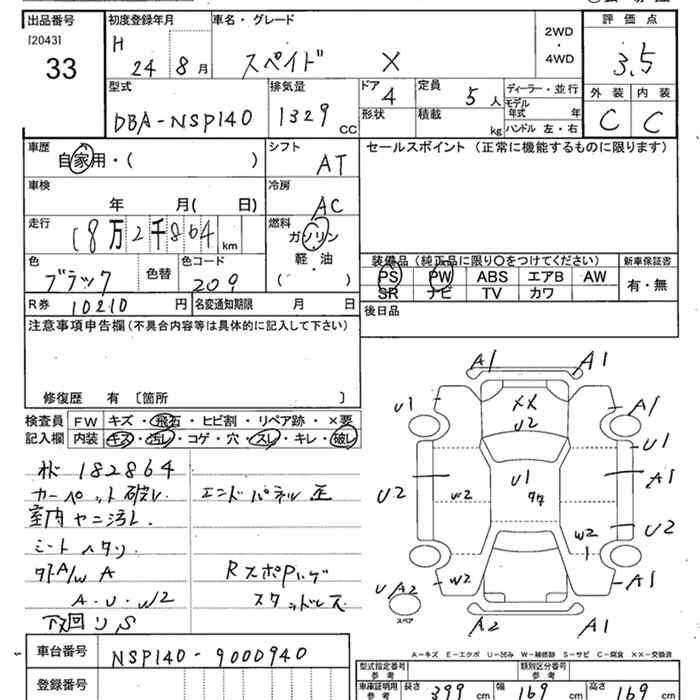 出品番号
[2043]
33
初度登録年月
H
24 8月
車名・グレード
スペイド X
2WD
・
4WD
評価点
3.5
外装 内装
C C
型式
DBA-NSP140
排気量
1329 CC
ドア 4
形状
定員 5人
積載 kg
ディーラー・並行
モデル年式 年
ハンドル 左・右
車歴
自家用・( )
シフト
AT
セールスポイント (正常に機能するものに限ります)
車検
年 月( 日)
冷房
AC
走行
18万2千864 km
燃料
ガソリン
軽・油
( )
色
ブラック
色替
色コード
209
装備品 (純正品に限り○をつけてください)
PS PW ABS エアB AW
SR ナビ TV カワ
新車保証書
有・無
R券 10210 円
名変通知期限 月 日
後日品
注意事項申告欄(不具合内容等は具体的に記入して下さい)
修復歴 有 〔箇所 〕
検査員記入欄
FW キズ・飛石・ヒビ割・リペア跡・×要
内装 キズ・汚レ・コゲ・穴・スレ・キレ・破レ
182864
カーペット破レ
エンドパネル歪
室内ヤニ汚レ
シートヘタリ
外A/W A
A・U・W2
下回リS
Rスポハゲ
スタッドレス
A1 A1
U1 XX A1
U2
U1
U1 A1
U2 W2
W2 U2
W2 1 A1
UA2
スペア
A2 A1
A-キズ E-エクボ U-凹み W-補修跡 S-サビ C-腐食 XX-交換済
車台番号
NSP140-9000940
登録番号
型式指定番号
参考
類別区分番号
参考
車庫証明用
参考
長さ 399 cm
幅 169 cm
高さ 169 cm